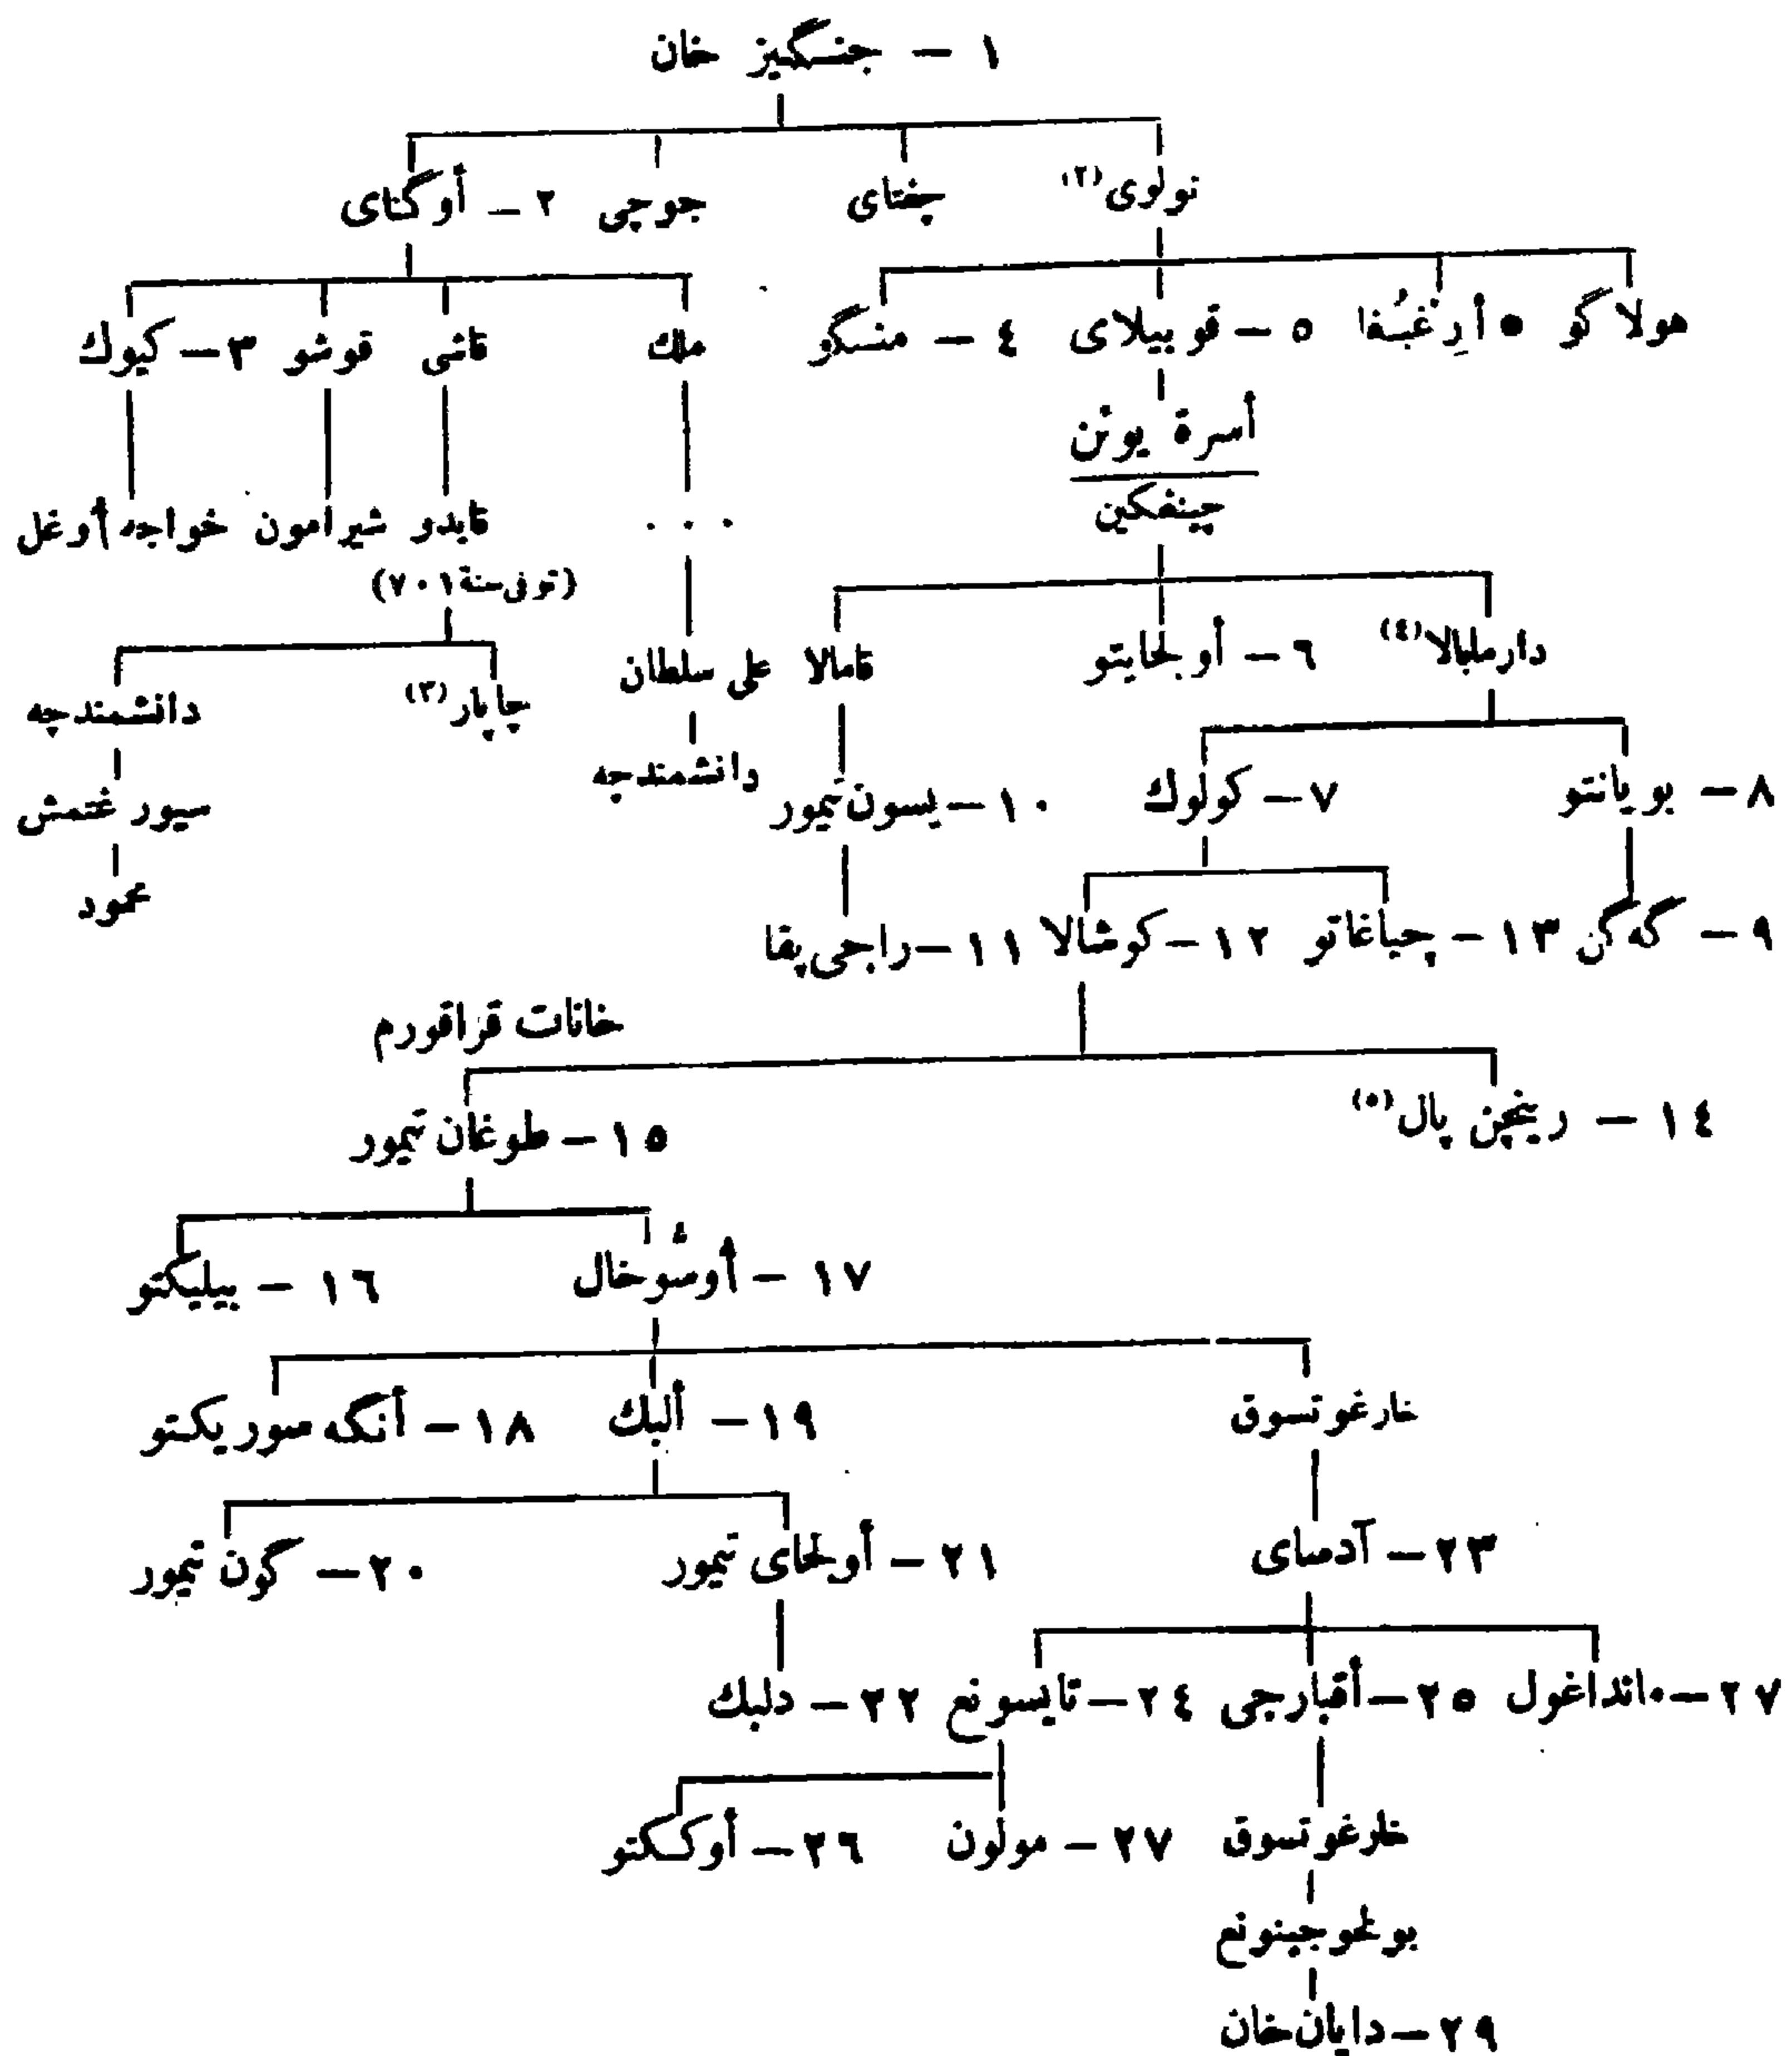 ١ – جنگيز خان
تولوى (٢) چغتاى جوچى ٢ – أوگتاى
هولاگو ٥ أرِغبُغا ٥ – قوبيلاى ٤ – منگو ملك قاشى قوشو ٣ – كيوك
أسرة يوئن
چينفكين
قايدو شيرامون خواجه أوغل
. . .
(توفى سنة ٧٠١)
دارمابالا (٤) ٦ – أولجايتو قامالا على سلطان
چاپار (٣) دانشمندچه
دانشمندجه
٨ – بويانتو ٧ – كولوك ١٠ – يسون تيمور
سيورغتمش
محمود
٩ – گه گن ١٣ – چياغاتو ١٢ – كوشالا ١١ – راجى پقا
خانات قراقورم
١٤ – رينچن پال (٥)
١٥ – طوغان تيمور
١٧ – أوسُوخال ١٦ – بيليكتو
خارغوتسوق ١٩ – ألبك ١٨ – أنگه سوريكتو
٢٣ – آدساى ٢١ – أولجاى تيمور ٢٠ – گون تيمور
٢٧ – مانداغول ٢٥ – أقبارجى ٢٤ – تايسونع ٢٢ – دلبك
خارغوتسوق ٢٧ – مولون ٢٦ – أوككتو
بولخو جينونع
٢٩ – دايان خان